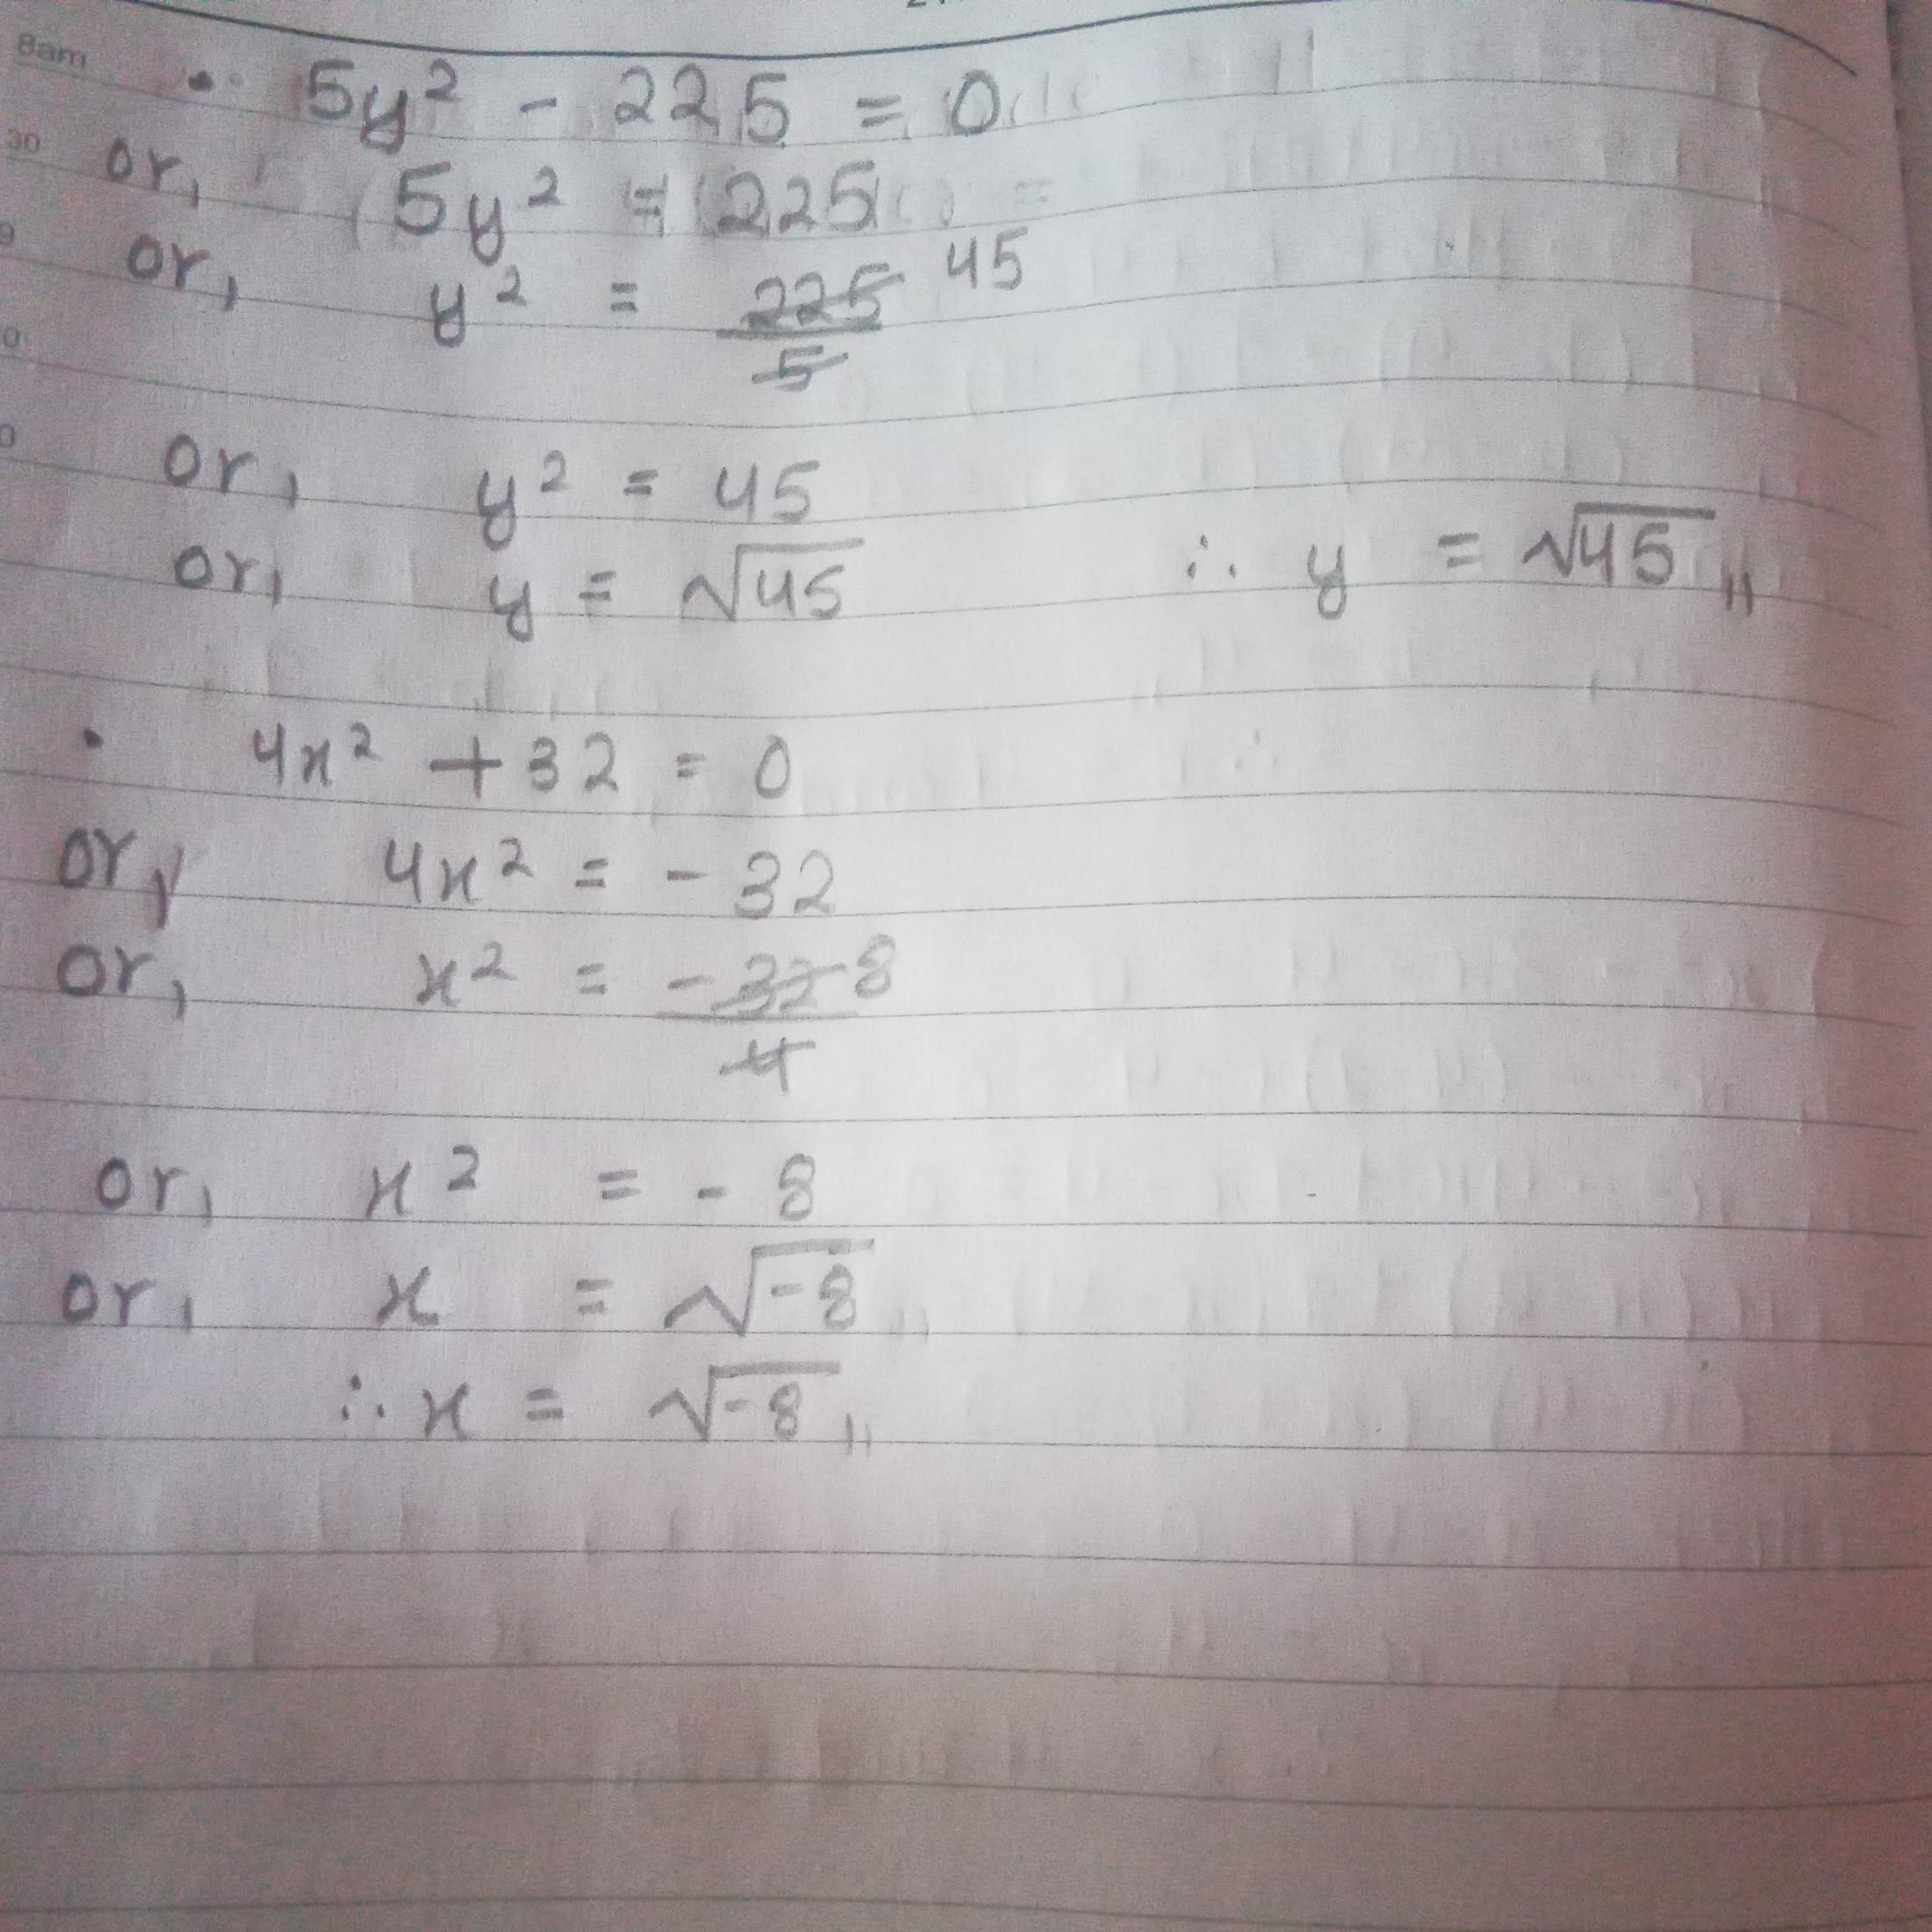 8am
• 5y² - 225 = 0
30
or, 5y² = 225
9
or, y² = 225/5 45
or, y² = 45
or, y = √45 ∴ y = √45 ,,
• 4x² + 32 = 0
or, 4x² = - 32
or, x² = -32/4 8
or, x² = - 8
or, x = √-8
∴ x = √-8 ,,